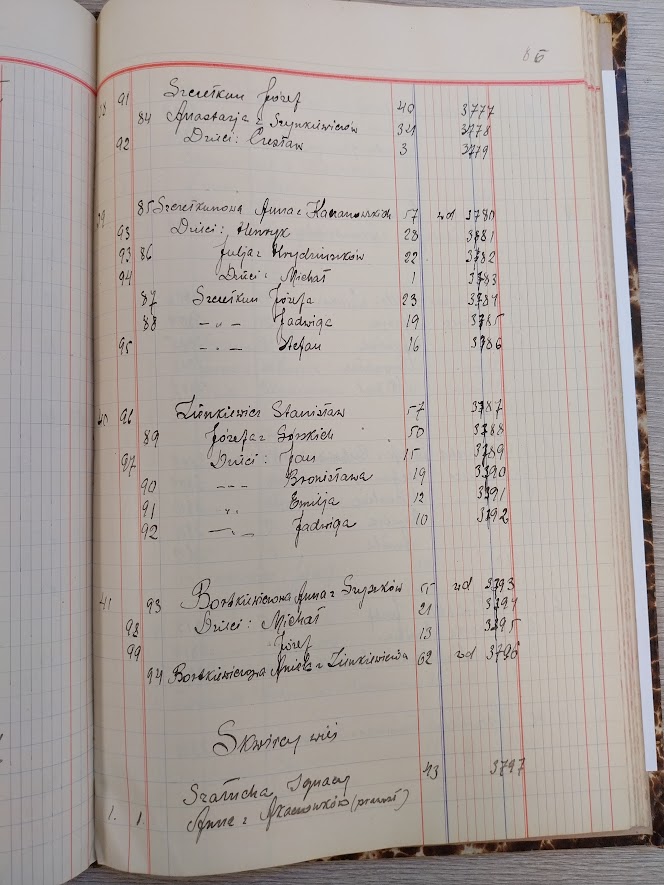 86
38 91 Szcretkun Józef 40 3777
84 Anastazja z Szynkiewiczów 34 3778
92 Dzieci: Czesław 3 3779
39 85 Szcretkunowa Anna z Kaczanowskich 57 wd 3780
93 Dzieci: Henryk 28 3781
93 86 Julja z Hrydziuszków 22 3782
94 Dzieci: Michał 1 3783
87 Szcretkun Józefa 23 3784
88 — „ — Jadwiga 19 3785
95 — „ — Stefan 16 3786
40 96 Zienkiewicz Stanisław 57 3787
89 Józefa z Górskich 50 3788
97 Dzieci: Jan 15 3789
90 — — — Bronisława 19 3790
91 „ Emilja 12 3791
92 — „ — Jadwiga 10 3792
41 93 Borkiewiczowa Anna z Szyszków 55 wd 3793
98 Dzieci: Michał 21 3794
99 Józef 13 3795
94 Borkiewiczowa Aniela z Zienkiewiczów 62 wd 3796
Skwircy wieś
Szałucha Ignacy 43 3797
1. 1. Anna z